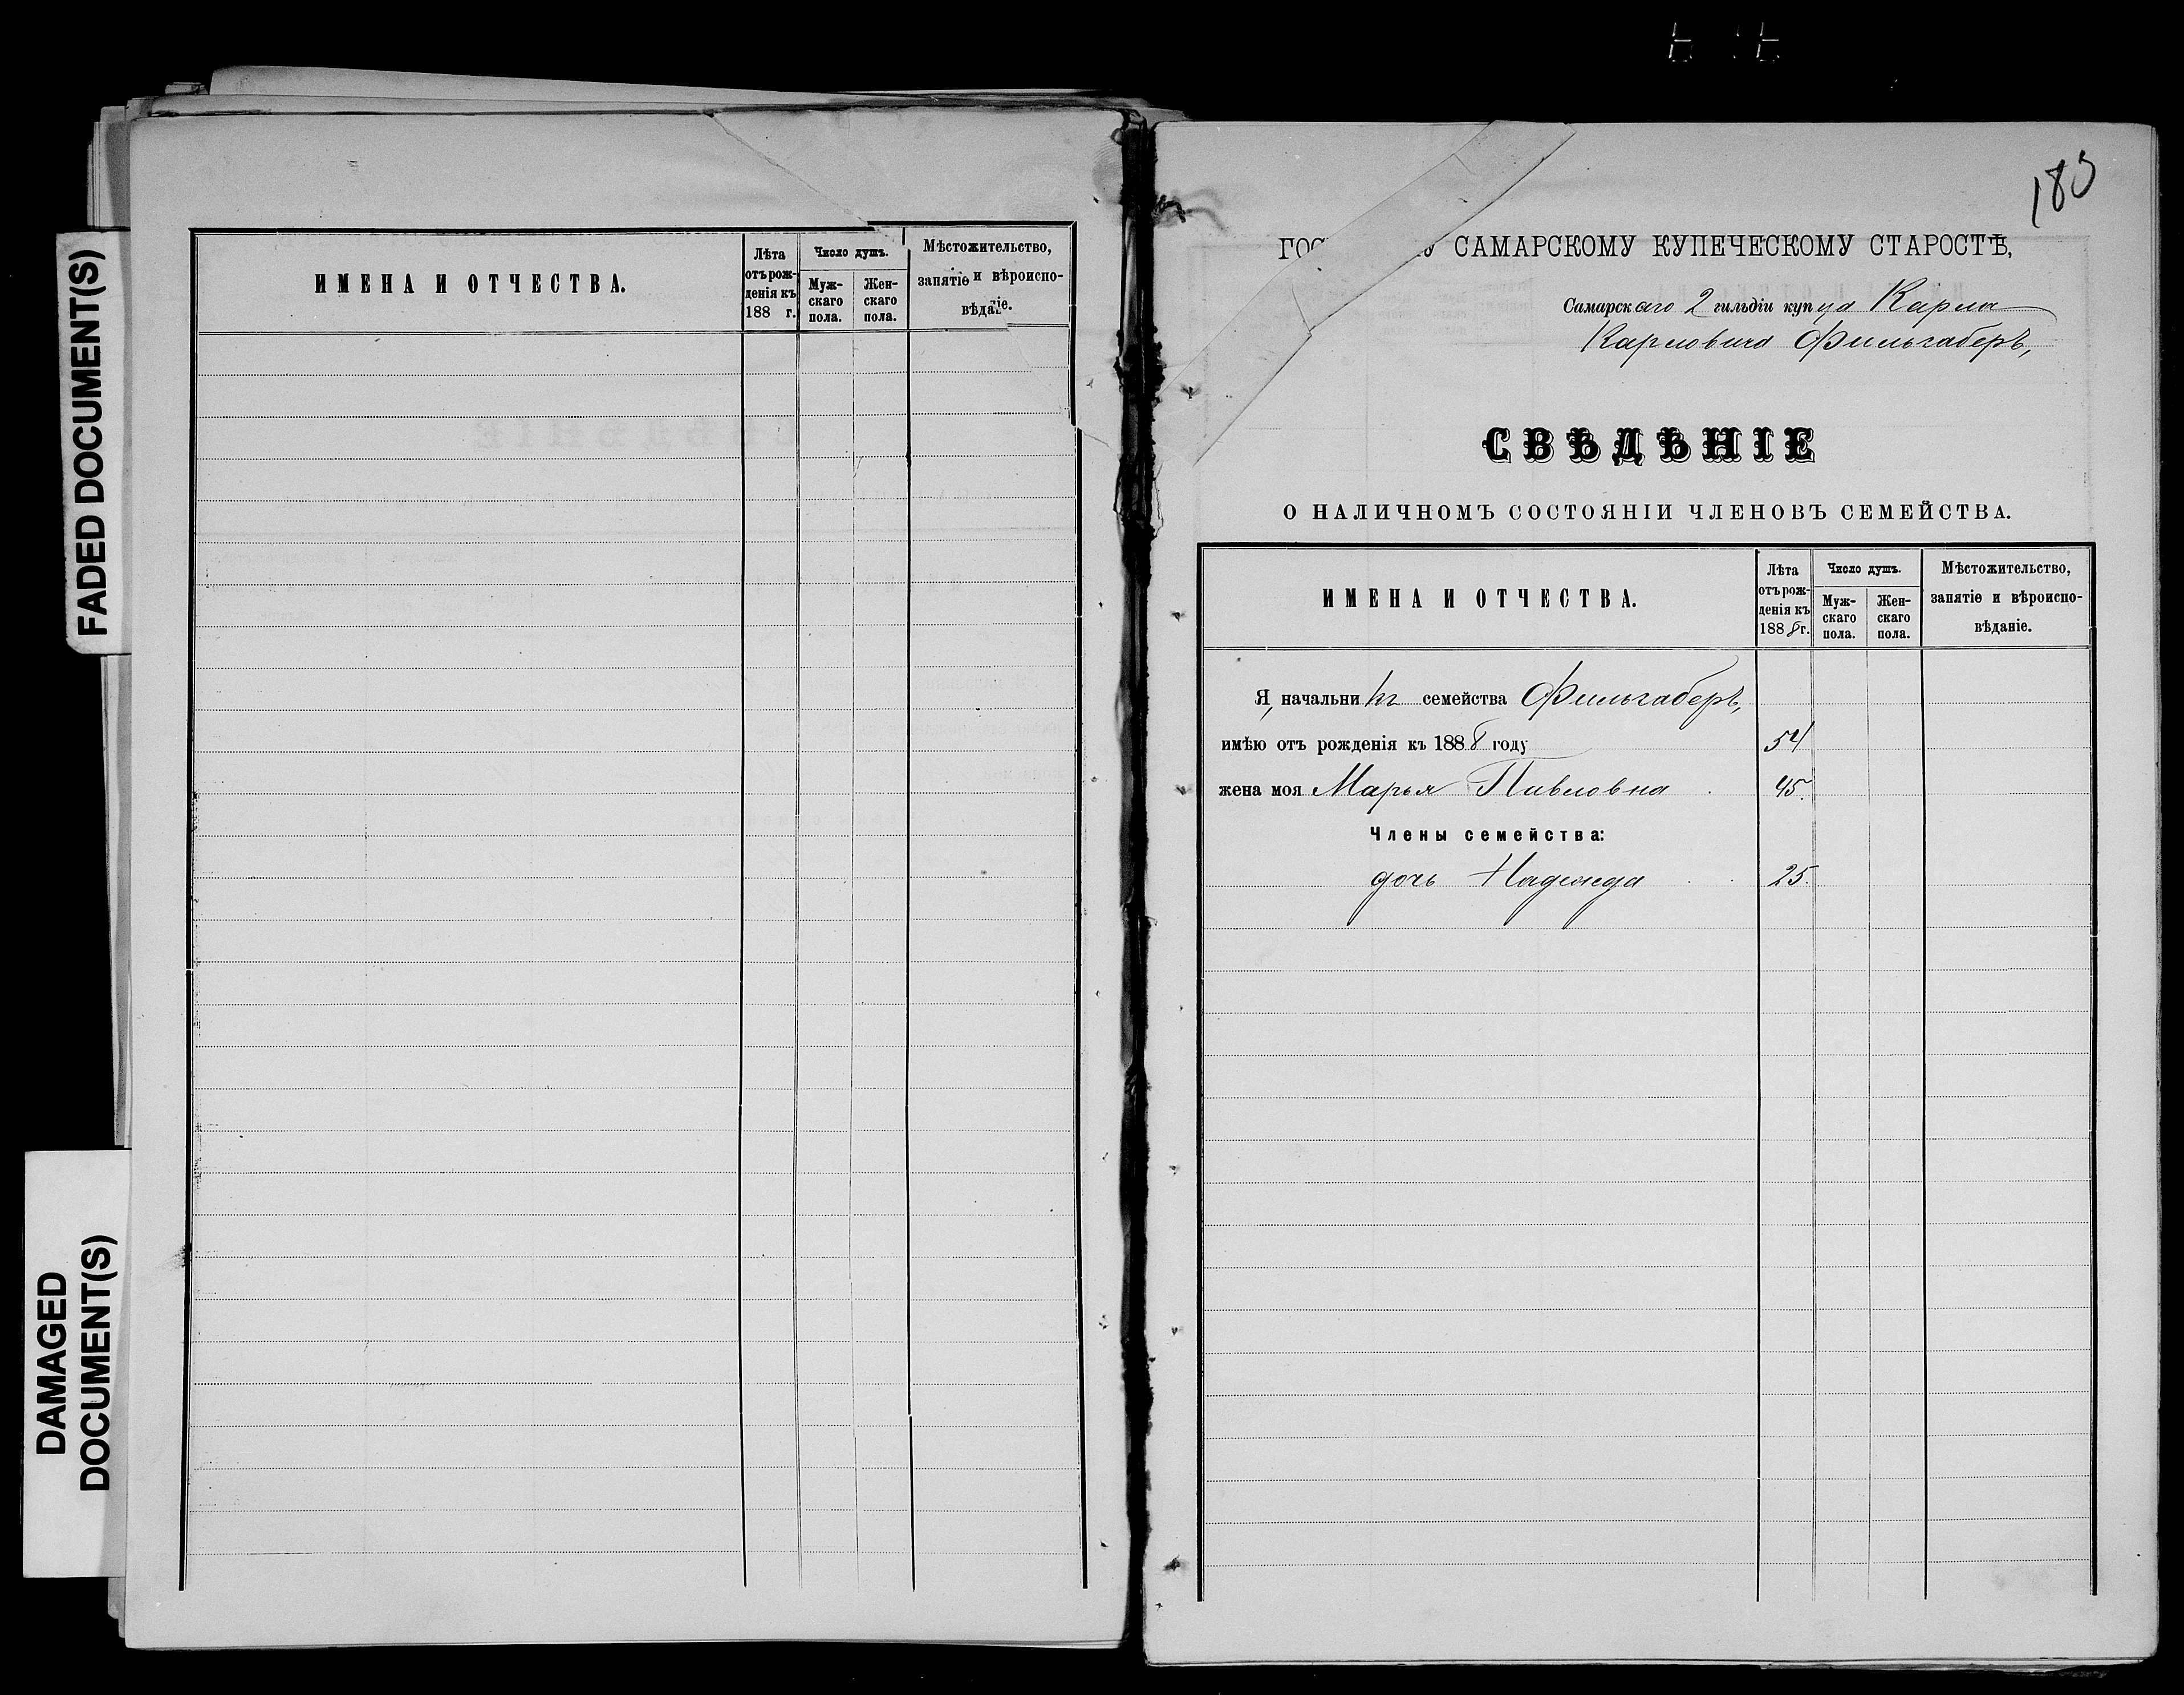 FADED DOCUMENT(S)
DAMAGED
DOCUMENT(S)
ИМЕНА И ОТЧЕСТВА.
Лѣта
отъ рож-
денія къ
188 г.
Число душъ.
Муж-
скаго
пола.
Жен-
скаго
пола.
Мѣстожительство,
запятіе и вѣроиспо-
вѣданіе.
ГОС У САМАРСКОМУ КУПЕЧЕСКОМУ СТАРОСТѢ,
Самарскаго 2 гильдіи купца Карла
Карловича Фильгаберъ,
СВѢДѢНІЕ
О НАЛИЧНОМЪ СОСТОЯНІИ ЧЛЕНОВЪ СЕМЕЙСТВА.
ИМЕНА И ОТЧЕСТВА.
Лѣта
отъ рож-
денія къ
1888 г.
Число душъ.
Муж-
скаго
пола.
Жен-
скаго
пола.
Мѣстожительство,
запятіе и вѣроиспо-
вѣданіе.
Я, начальникъ семейства Фильгаберъ,
имѣю отъ рожденія къ 1888 году 54
жена моя Марья Павловна 45.
Члены семейства:
дочь Надежда 25.